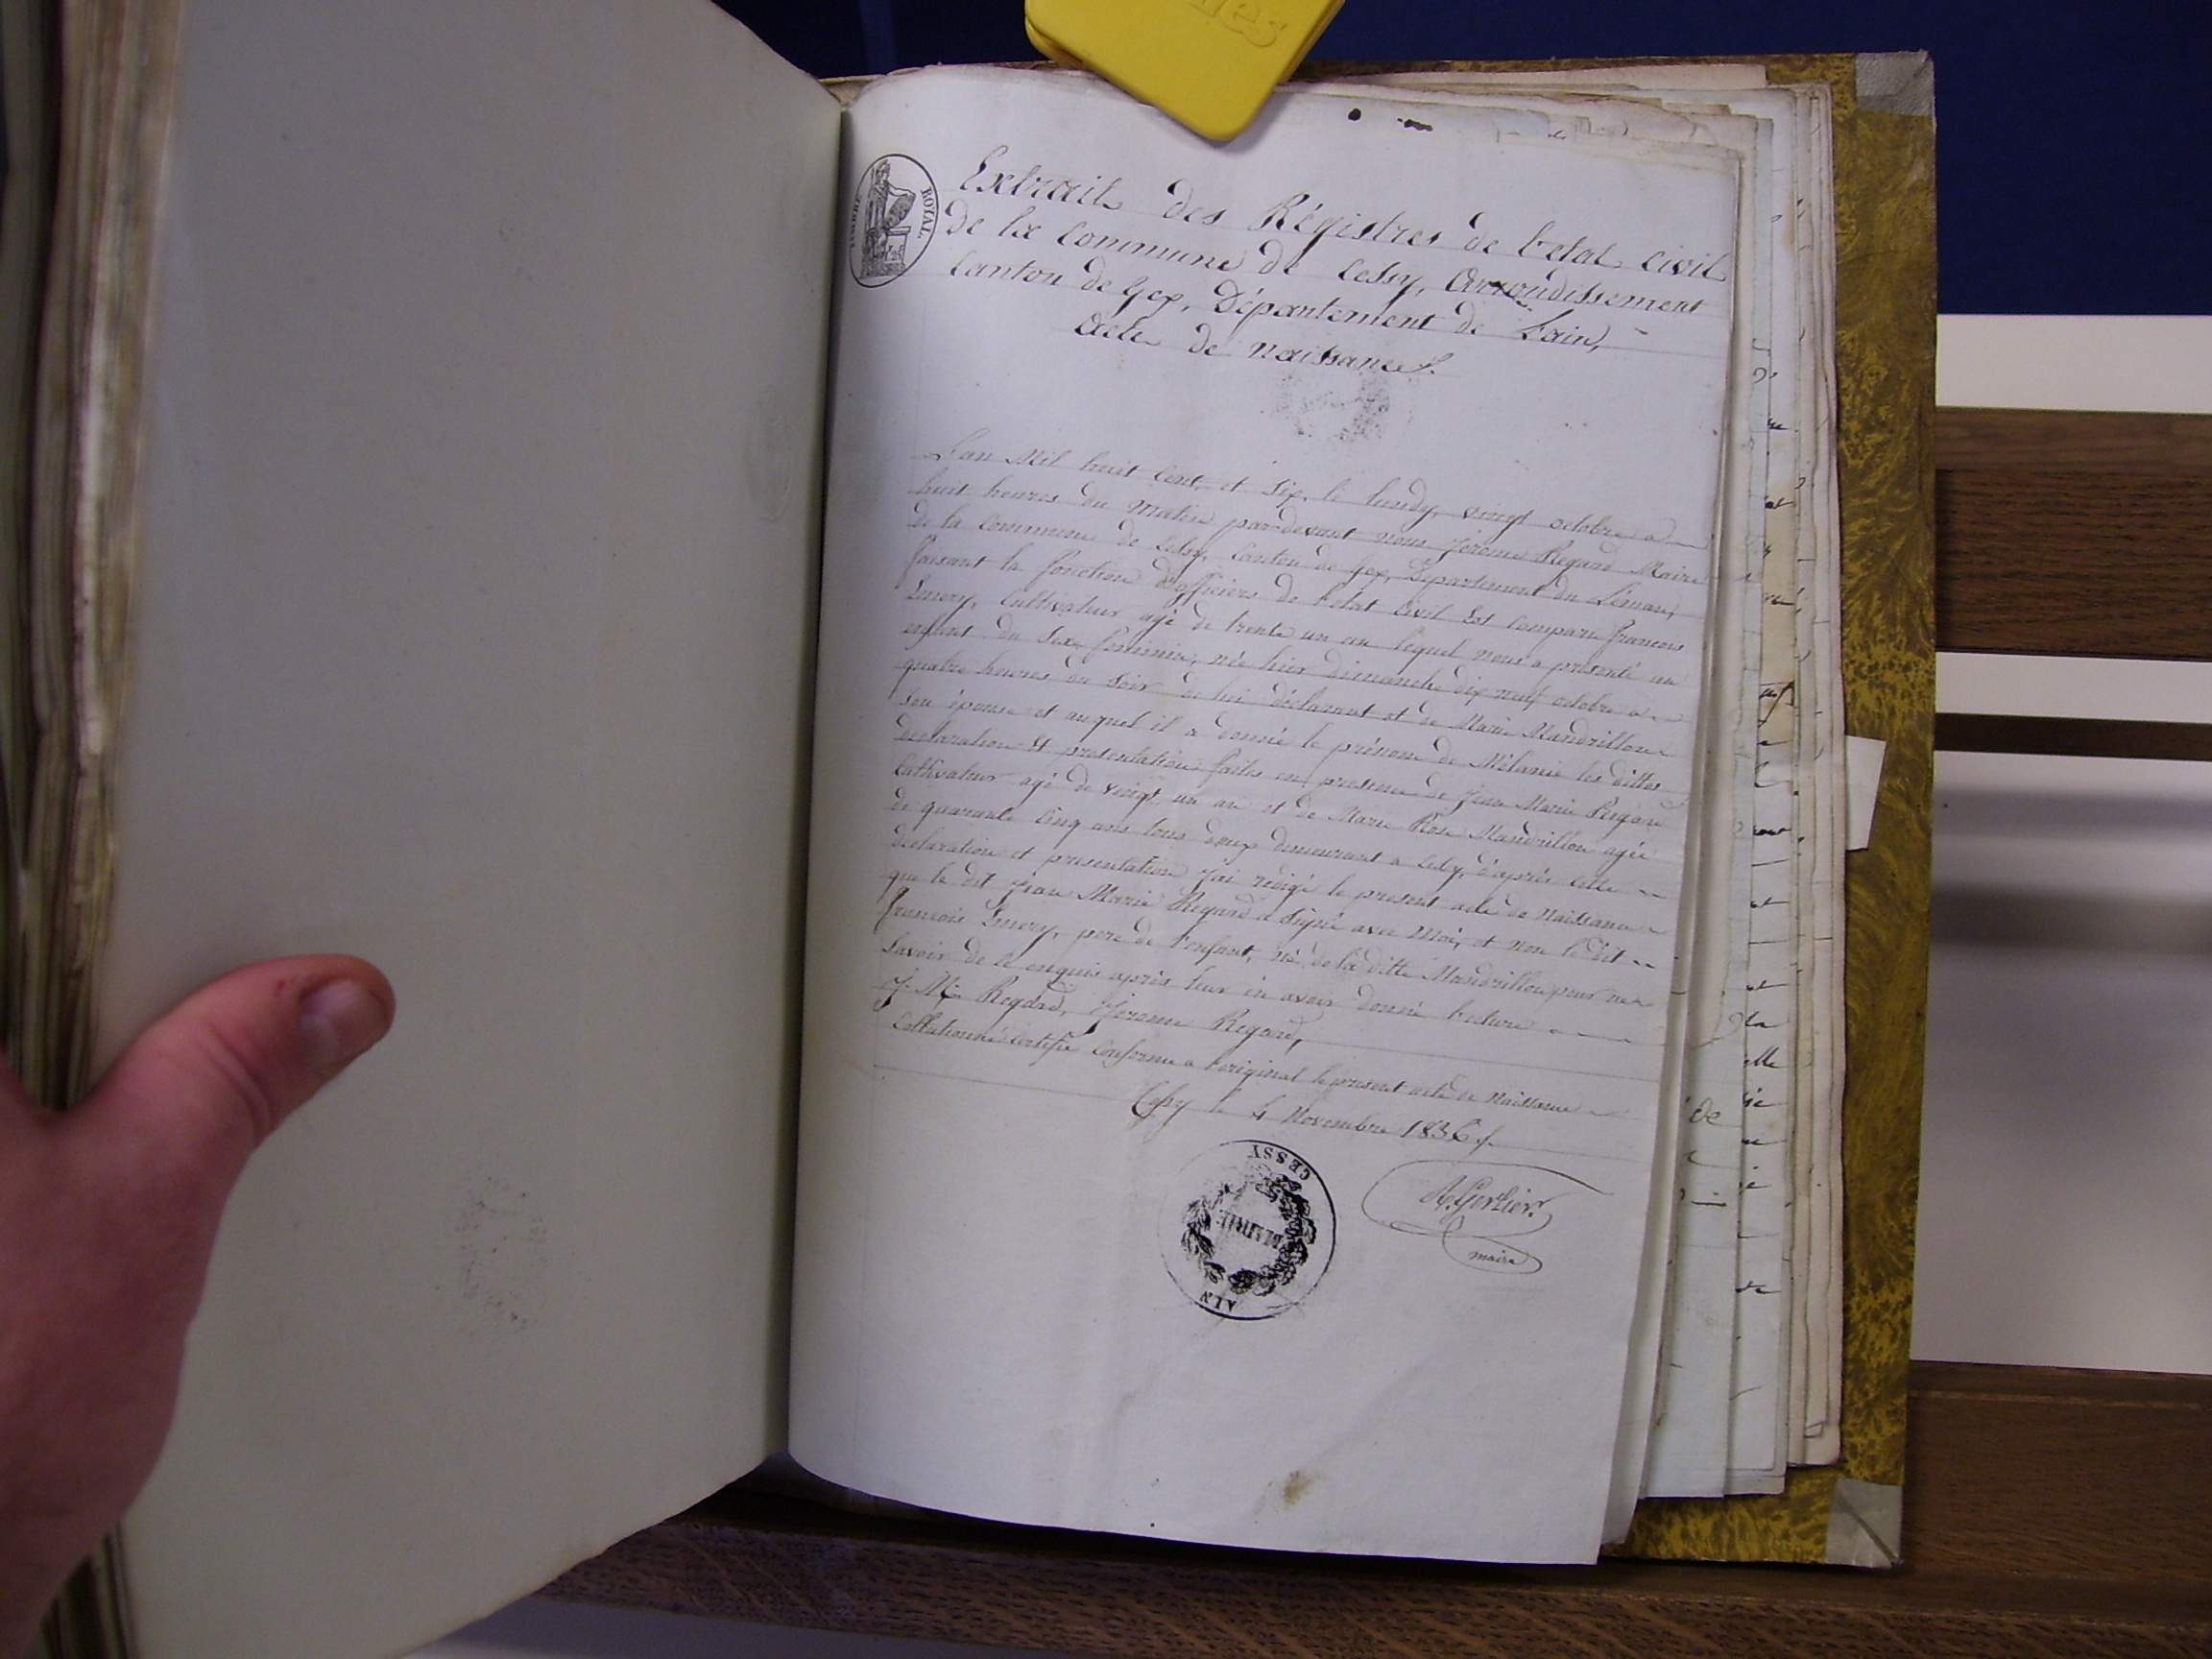 TIMBRE ROYAL.
Extrait des Régistres de l'etat civil
de la commune de Cessy, Arrondissement
Canton de Gex, Département de Lain,
Acte de naissance.
L'an Mil huit Cent et Six, le lundy vingt octobre a
huit heures du Matin pardevant nous Jérome Regard Maire
de la commune de Cessy, Canton de Gex, Departement du Léman,
faisant la fonction d'officiers de l'etat Civil Est Comparu francois
Emery, Cultivateur agé de trente un an lequel nous a présenté un
enfant du Sexe feminin, née hier dimanche dix neuf octobre a
quatre heures du Soir de lui déclarant et de Marie Mandrillon
son épouse et auquel il a donné le prénom de Mélanie les dittes
declaration et presentation faites en presence de Jean Marie Regard
Cultivateur agé de vingt un an et de Marie Rose Mandrillon agée
de quarante Cinq ans tous deux demeurant a Cessy, d'après cette
declaration et presentation J'ai redigé le present acte de Naissance
que le dit Jean Marie Regard a Signé avec Moi, et non le dit
francois Emery, pere de l'enfant, né de la ditte Mandrillon pour ne
Savoir de ce enquis après leur en avoir donné lecture
J. M. Regard, Jérome Regard,
Collationné Certifié Conforme a l'original le present acte de Naissance
Cessy le 4 Novembre 1836
CESSY
MAIRIE
AIN
A. Gerlier.
maire